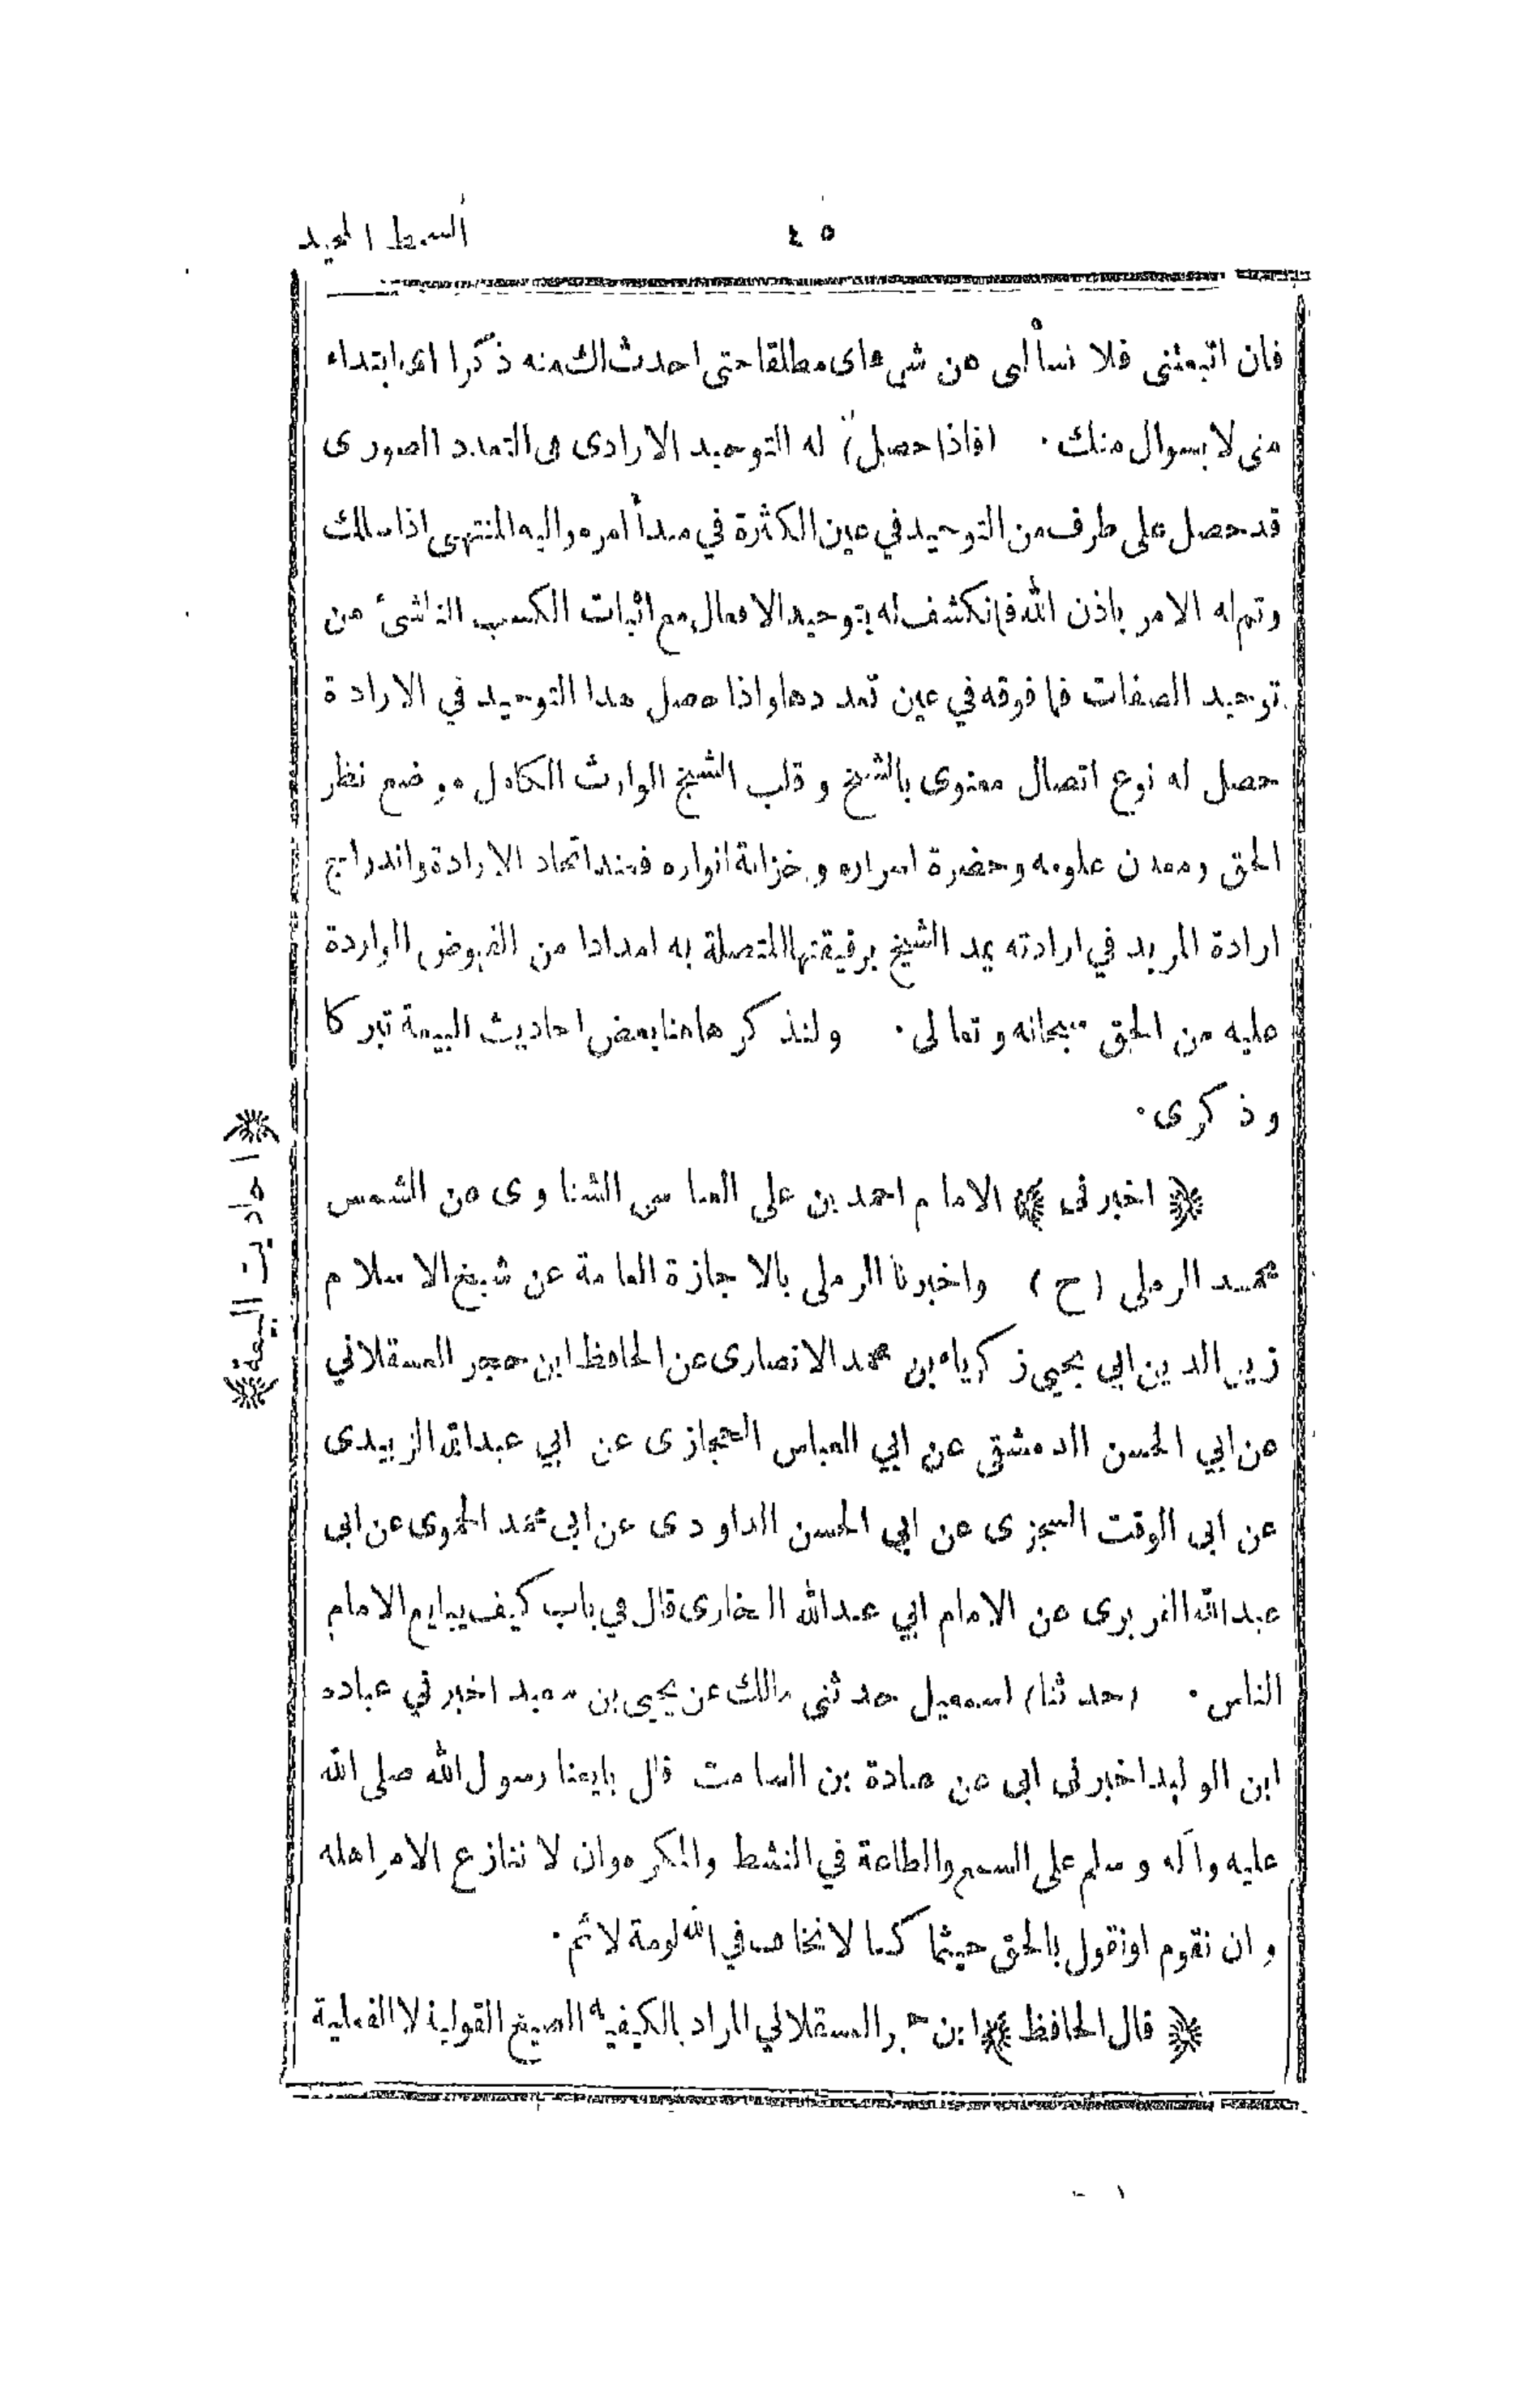 السمط المجيد
٤٥
فان اتبعتنى فلا تسألنى عن شىء اى مطلقا حتى احدث لك منه ذكرا اى ابتداء
منى لا بسوال منك . (فاذا حصل) له التوحيد الارادى فى التعدد الصورى
قد حصل على طرف من التوحيد في عين الكثرة في مبدأ امره واليه المنتهى اذا سلك
وتم له الامر باذن الله فانكشف له بتوحيد الافعال مع اثبات الكسب الناشئ من
توحيد الصفات فما فوقه في عين تعددها واذا حصل هذا التوحيد في الارادة
حصل له نوع اتصال معنوى بالشيخ و قلب الشيخ الوارث الكامل موضع نظر
الحق ومعدن علومه وحضرة اسراره و خزانة انواره فعند اتحاد الارادة واندراج
ارادة المريد في ارادته يمد الشيخ برقيقتها المتصلة به امدادا من الفيوض الواردة
عليه من الحق سبحانه و تعالى . ولنذكر هاهنا بعض احاديث البيعة تبركا
وذكرى .
﴿ اخبرنى ﴾ الامام احمد بن على العباسى الشناوى عن الشمس
محمد الرملى (ح) واخبرنا الرملى بالاجازة العامة عن شيخ الاسلام
زين الدين ابي يحيى زكرياء بن محمد الانصارى عن الحافظ ابن حجر العسقلاني
عن ابي الحسن الدمشقى عن ابي العباس الحجازى عن ابي عبدالله الزبيدى
عن ابى الوقت السجزى عن ابي الحسن الداودى عن ابي محمد الحموى عن ابى
عبدالله الفربرى عن الامام ابي عبدالله البخارى قال في باب كيف يبايع الامام
الناس . (حدثنا) اسمعيل حدثنى مالك عن يحيى بن سعيد اخبرني عباده
ابن الوليد اخبرنى ابى عن عبادة بن الصامت قال بايعنا رسول الله صلى الله
عليه وآله وسلم على السمع والطاعة في النشط والمكره وان لا ننازع الامر اهله
وان نقوم او نقول بالحق حيثما كنا لا نخاف في الله لومة لائم .
﴿ قال الحافظ ﴾ ابن حجر العسقلاني المراد بالكيفية الصيغ القولية لا الفعلية
﴿ احاديث البيعة ﴾